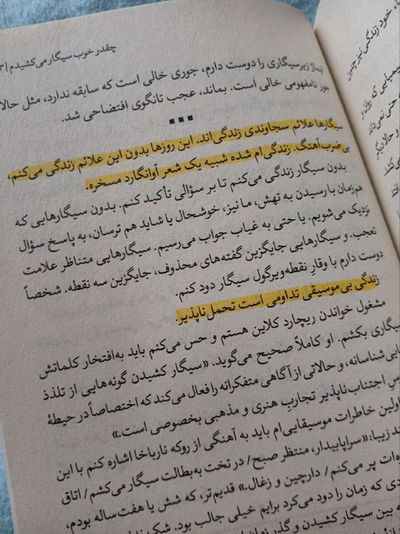 چقدر خوب سیگار می‌کشیدم
زیرسیگاری را دوست دارم، جوری خالی است که سابقه ندارد، مثل حالا
جور نامفهومی خالی است. بماند، عجب تانگوی افتضاحی شد.
■ ■ ■
سیگارها علائم سجاوندی زندگی‌اند. این روزها بدون این علائم زندگی می‌کنم،
بی ضرب‌آهنگ. زندگی‌ام شده شبیه یک شعر آوانگارد مسخره.
بدون سیگار زندگی می‌کنم تا بر سؤالی تأکید کنم. بدون سیگارهایی که
هم‌زمان با رسیدن به تهش، ما نیز، خوشحال یا شاید هم ترسان، به پاسخ سؤال
نزدیک می‌شویم. یا حتی به غیاب جواب می‌رسیم. سیگارهایی متناظر علامت
تعجب، و سیگارهایی جایگزین گفته‌های محذوف، جایگزین سه نقطه. شخصاً
دوست دارم با وقارِ نقطه‌ویرگول سیگار دود کنم.
زندگی بی‌موسیقی تداومی است تحمل‌ناپذیر.
مشغول خواندن ریچارد کلاین هستم و حس می‌کنم باید به‌افتخار کلماتش
سیگاری بکشم. او کاملاً صحیح می‌گوید. «سیگار کشیدن گونه‌هایی از تلذذ
شناسانه، و حالاتی از آگاهی متفکرانه را فعال می‌کند که اختصاصاً در حیطهٔ
اجتناب‌ناپذیر تجاربِ هنری و مذهبی بخصوصی است.»
اولین خاطرات موسیقایی‌ام باید به آهنگی از روکه نارباخا اشاره کنم با این
زیبا: «سراپا بیدار، منتظر صبح/ در تخت به‌بطالت سیگار می‌کشم/ اتاق
پر می‌کنم/ دارچین و زغال.» قدیم‌تر، که شش یا هفت‌ساله بودم،
که زمان را دود می‌کرد برایم خیلی جالب بود. شک
بین سیگار کشیدن و گذر زمان